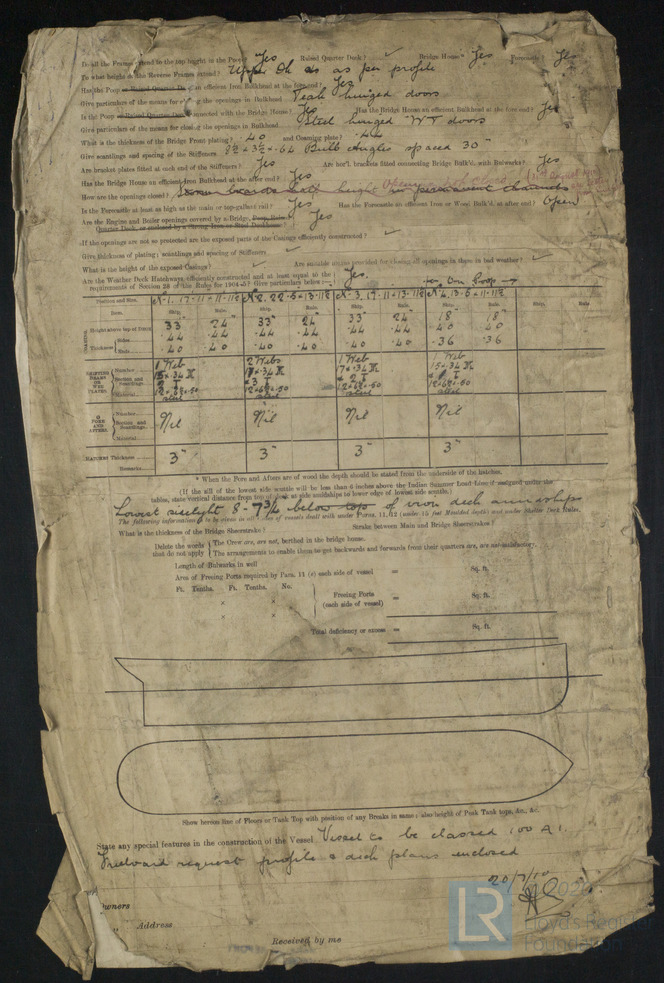 Do all the Frames extend to the top height in the Poop? Yes Raised Quarter Deck? ✓ Bridge House? Yes Forecastle? Yes
To what height do the Reverse Frames extend? Upper Dk as per profile
Has the Poop or Raised Quarter Deck an efficient Iron Bulkhead at the fore end? Yes
Give particulars of the means for closing the openings in Bulkhead Teak hinged doors
Is the Poop or Raised Quarter Deck connected with the Bridge House? Yes Has the Bridge House an efficient Bulkhead at the fore end? Yes
Give particulars of the means for closing the openings in Bulkhead Steel hinged WT doors
What is the thickness of the Bridge Front plating? .40 and Coaming plate? .44
Give scantlings and spacing of the Stiffeners Bulb Angles spaced 30"
Are bracket plates fitted at each end of the Stiffeners? Yes Are hor'l brackets fitted connecting Bridge Bulk'd. with Bulwarks? Yes
Has the Bridge House an efficient Iron Bulkhead at the after end? Yes
How are the openings closed? boards half height in permanent channels
Is the Forecastle at least as high as the main or top-gallant rail? Yes Has the Forecastle an efficient Iron or Wood Bulk'd. at after end? Open
Are the Engine and Boiler openings covered by a Bridge, Poop, Raised Quarter Deck, or enclosed by a Strong Iron or Steel Deckhouse? Yes
If the openings are not so protected are the exposed parts of the Casings efficiently constructed? ✓
Give thickness of plating; scantlings and spacing of Stiffeners ✓
What is the height of the exposed Casings? ✓ Are suitable means provided for closing all openings in them in bad weather? ✓
Are the Weather Deck Hatchways efficiently constructed and at least equal to the
requirements of Section 28 of the Rules for 1904-5? Give particulars below:— Yes. On Poop →
Position and Size. No. 1. 17-11 × 11-11½ No. 2. 22-5 × 13-11½ No. 3. 17-11 × 13-11½ No. 4. 13-5 × 11-11½
Item. Ship. Rule. Ship. Rule. Ship. Rule. Ship. Rule. Ship. Rule.
Height above top of Deck 33" 24" 33" 24" 33" 24" 18" 18"
Thickness Sides .44 .44 .44 .44 .44 .44 .40 .40
Ends .40 .40 .40 .40 .40 .40 .36 .36
SHIFTING BEAMS OR WEB PLATES. Number 1 Web 2 Webs 1 Web 1 Web
Section and Scantlings
Material Steel
FORE AND AFTERS. Number Nil Nil Nil Nil
Section and Scantlings
Material
HATCHES Thickness 3" 3" 3" 3"
Remarks
* When the Fore and Afters are of wood the depth should be stated from the underside of the hatches.
(If the sill of the lowest side scuttle will be less than 6 inches above the Indian Summer Load Line if assigned under the
tables, state vertical distance from top of deck at side amidships to lower edge of lowest side scuttle.)
Lowest sidelight 8-7¾ below top of iron deck amidships
What is the thickness of the Bridge Sheerstrake? Strake between Main and Bridge Sheerstrakes?
Delete the words that do not apply { The Crew are, are not, berthed in the bridge house.
The arrangements to enable them to get backwards and forwards from their quarters are, are not satisfactory.
Length of Bulwarks in well
Area of Freeing Ports required by Para. 11 (e) each side of vessel = Sq. ft.
Ft. Tenths. Ft. Tenths. No.
× × Freeing Ports (each side of vessel) = Sq. ft.
× ×
Total deficiency or excess = Sq. ft.
Show hereon line of Floors or Tank Top with position of any Breaks in same; also height of Peak Tank tops, &c., &c.
State any special features in the construction of the Vessel Vessel to be classed 100 A1.
Freeboard request profile & deck plans enclosed
20/7/10
Owners
Address
Received by me
LR
Lloyd's Register
Foundation